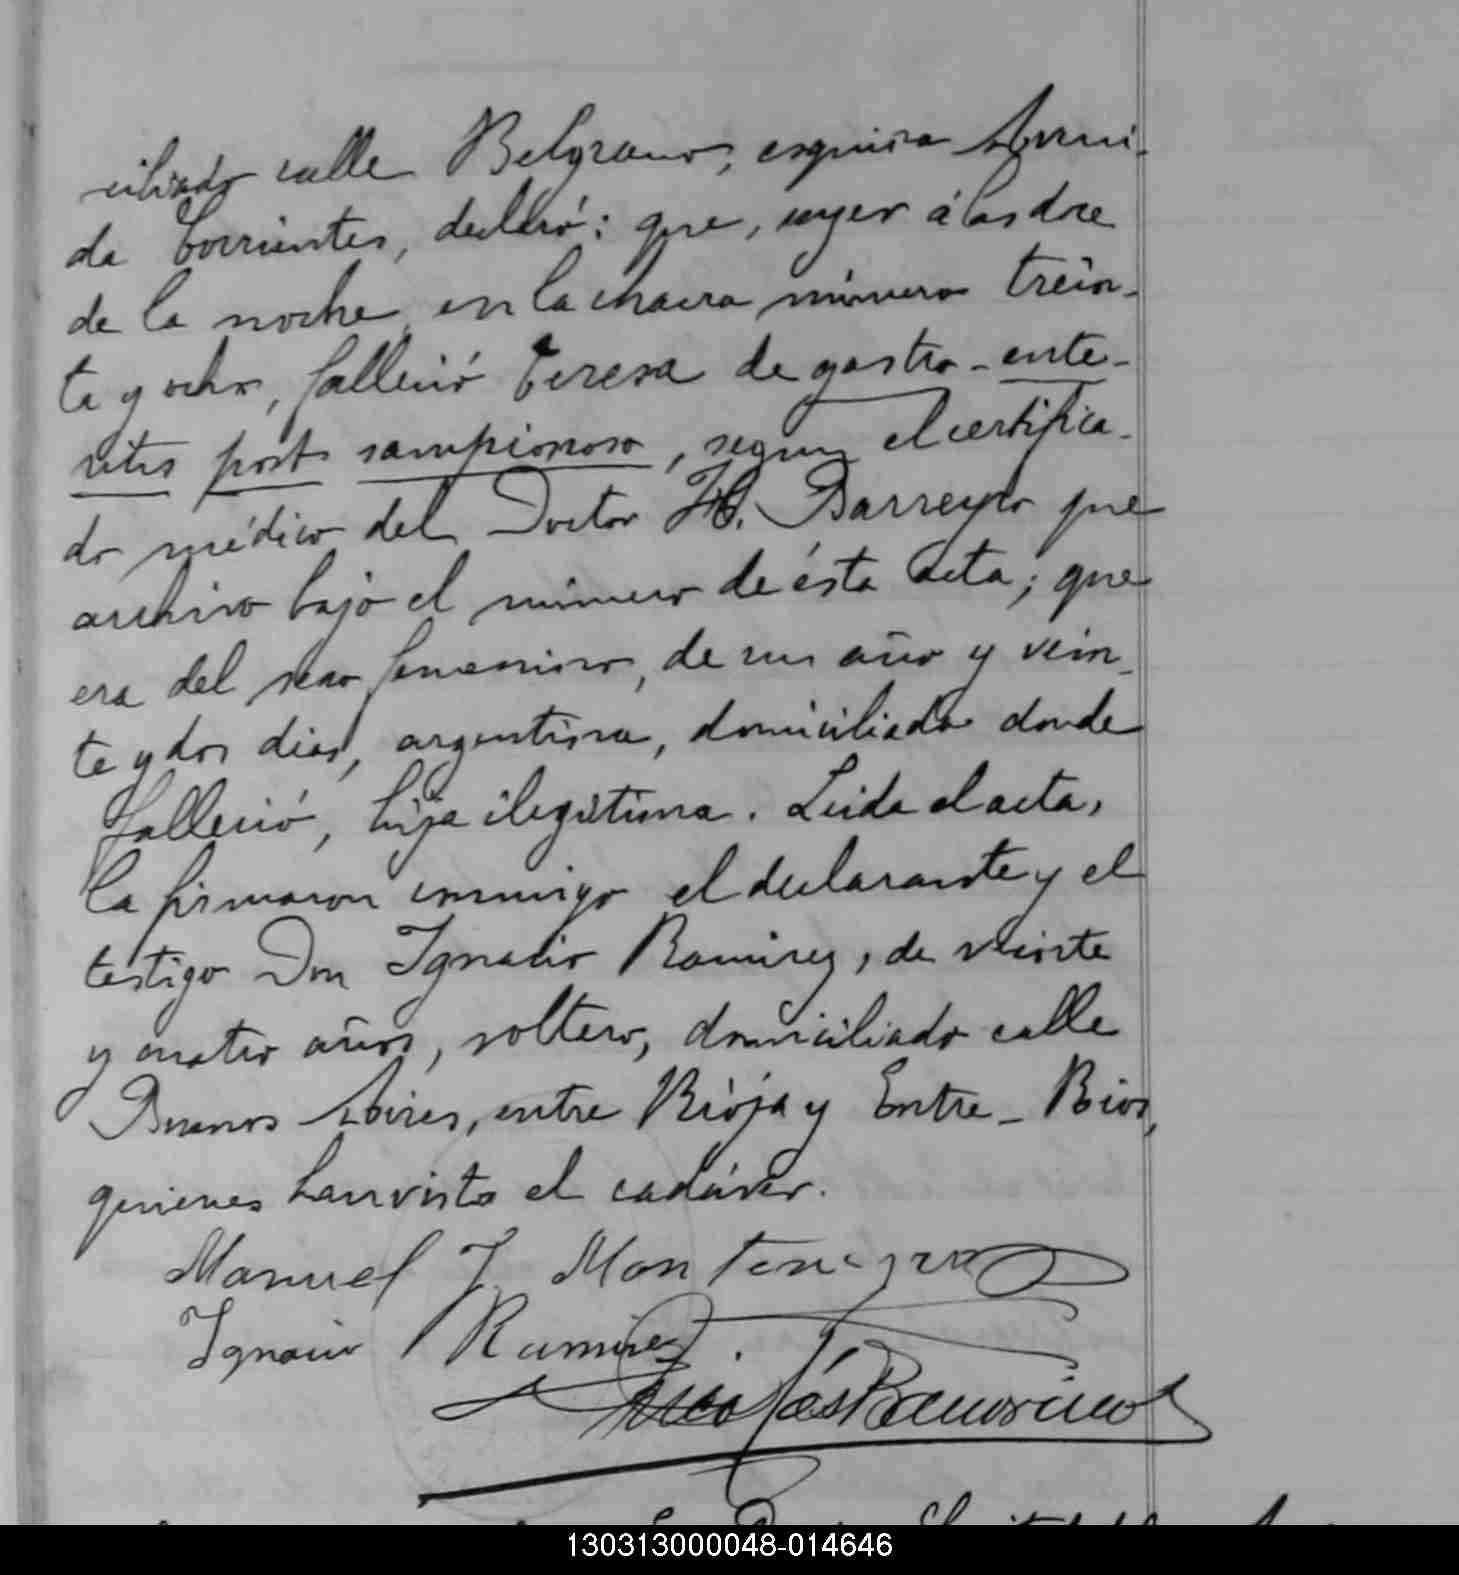 ciliado calle Belgrano, esquina Aveni-
da Corrientes, declaró: que, ayer á las doce
de la noche en la chacra número trein-
ta y ocho, falleció Teresa de gastro-ente-
ritis post sampionoso, segun el certifica-
do médico del Doctor H. Barreyro que
archivo bajo el número de ésta acta; que
era del sexo femenino, de un año y vein-
te y dos dias, argentina, domiciliada donde
falleció, hija ilegitima. Leida el acta,
la firmaron conmigo el declarante y el
testigo Don Ignacio Ramirez, de veinte
y cuatro años, soltero, domiciliado calle
Buenos Aires, entre Rioja y Entre-Rios,
quienes han visto el cadáver.
Manuel J. Montenegro
Ignacio Ramirez.
Nicolás
130313000048-014646